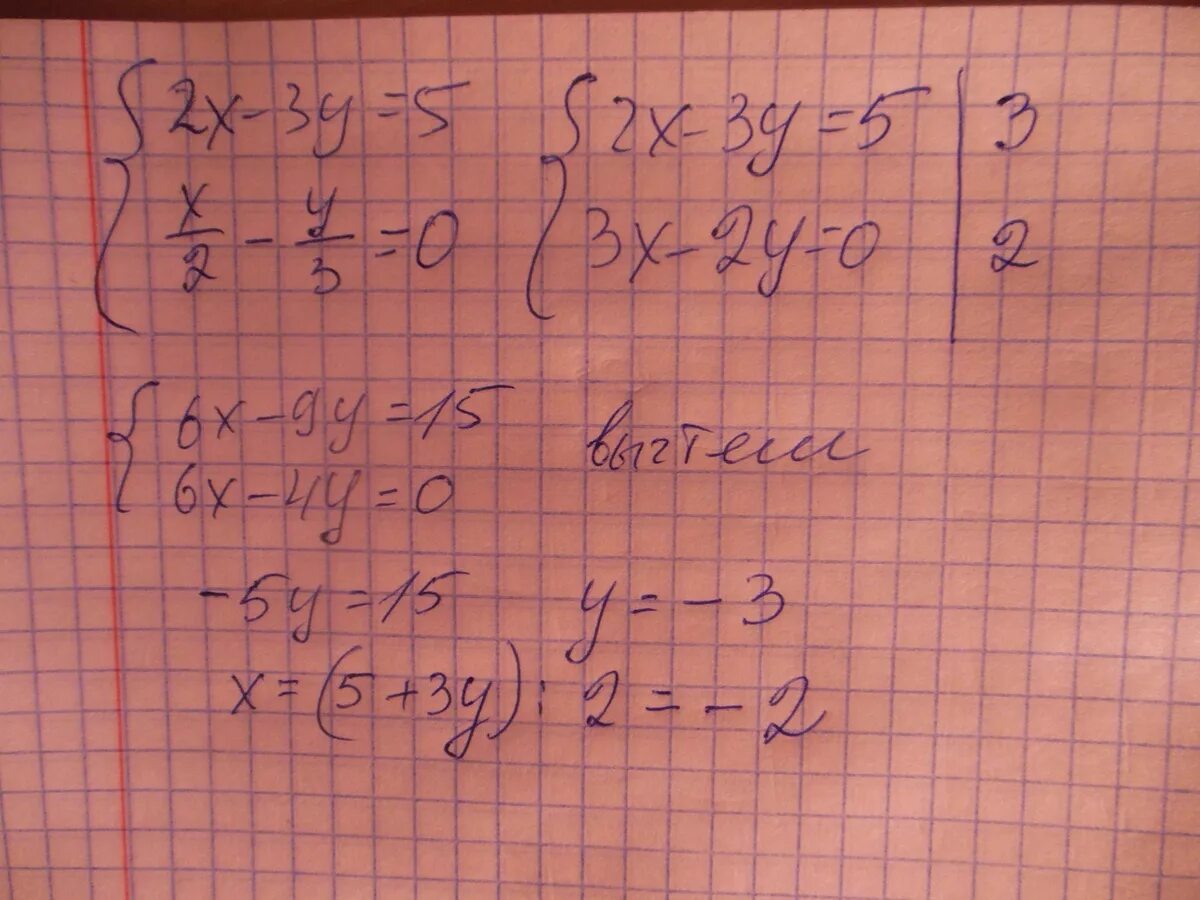 {2x-3y=5
x/2 - y/3 =0
{2x-3y=5 | 3
3x-2y=0 | 2
{6x-9y=15
6x-4y=0
вычтем
-5y=15 y=-3
x=(5+3y):2=-2